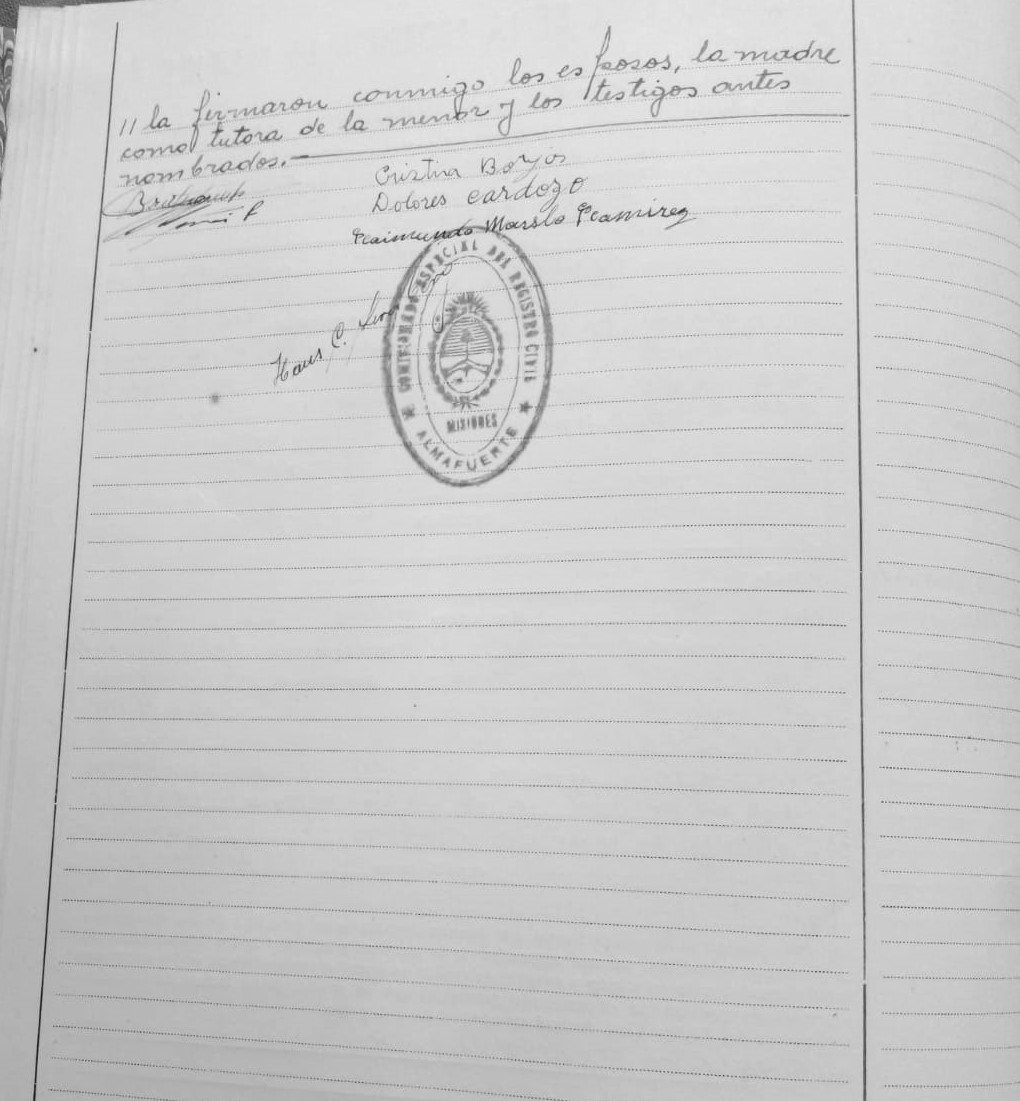 // la firmaron conmigo los esposos, la madre
como tutora de la menor y los testigos antes
nombrados.—
Cristina
Dolores Cardozo
Raimundo Ramirez
Hans C.
COMISIONADO ESPECIAL DEL REGISTRO CIVIL
MISIONES
★ ALMAFUERTE ★